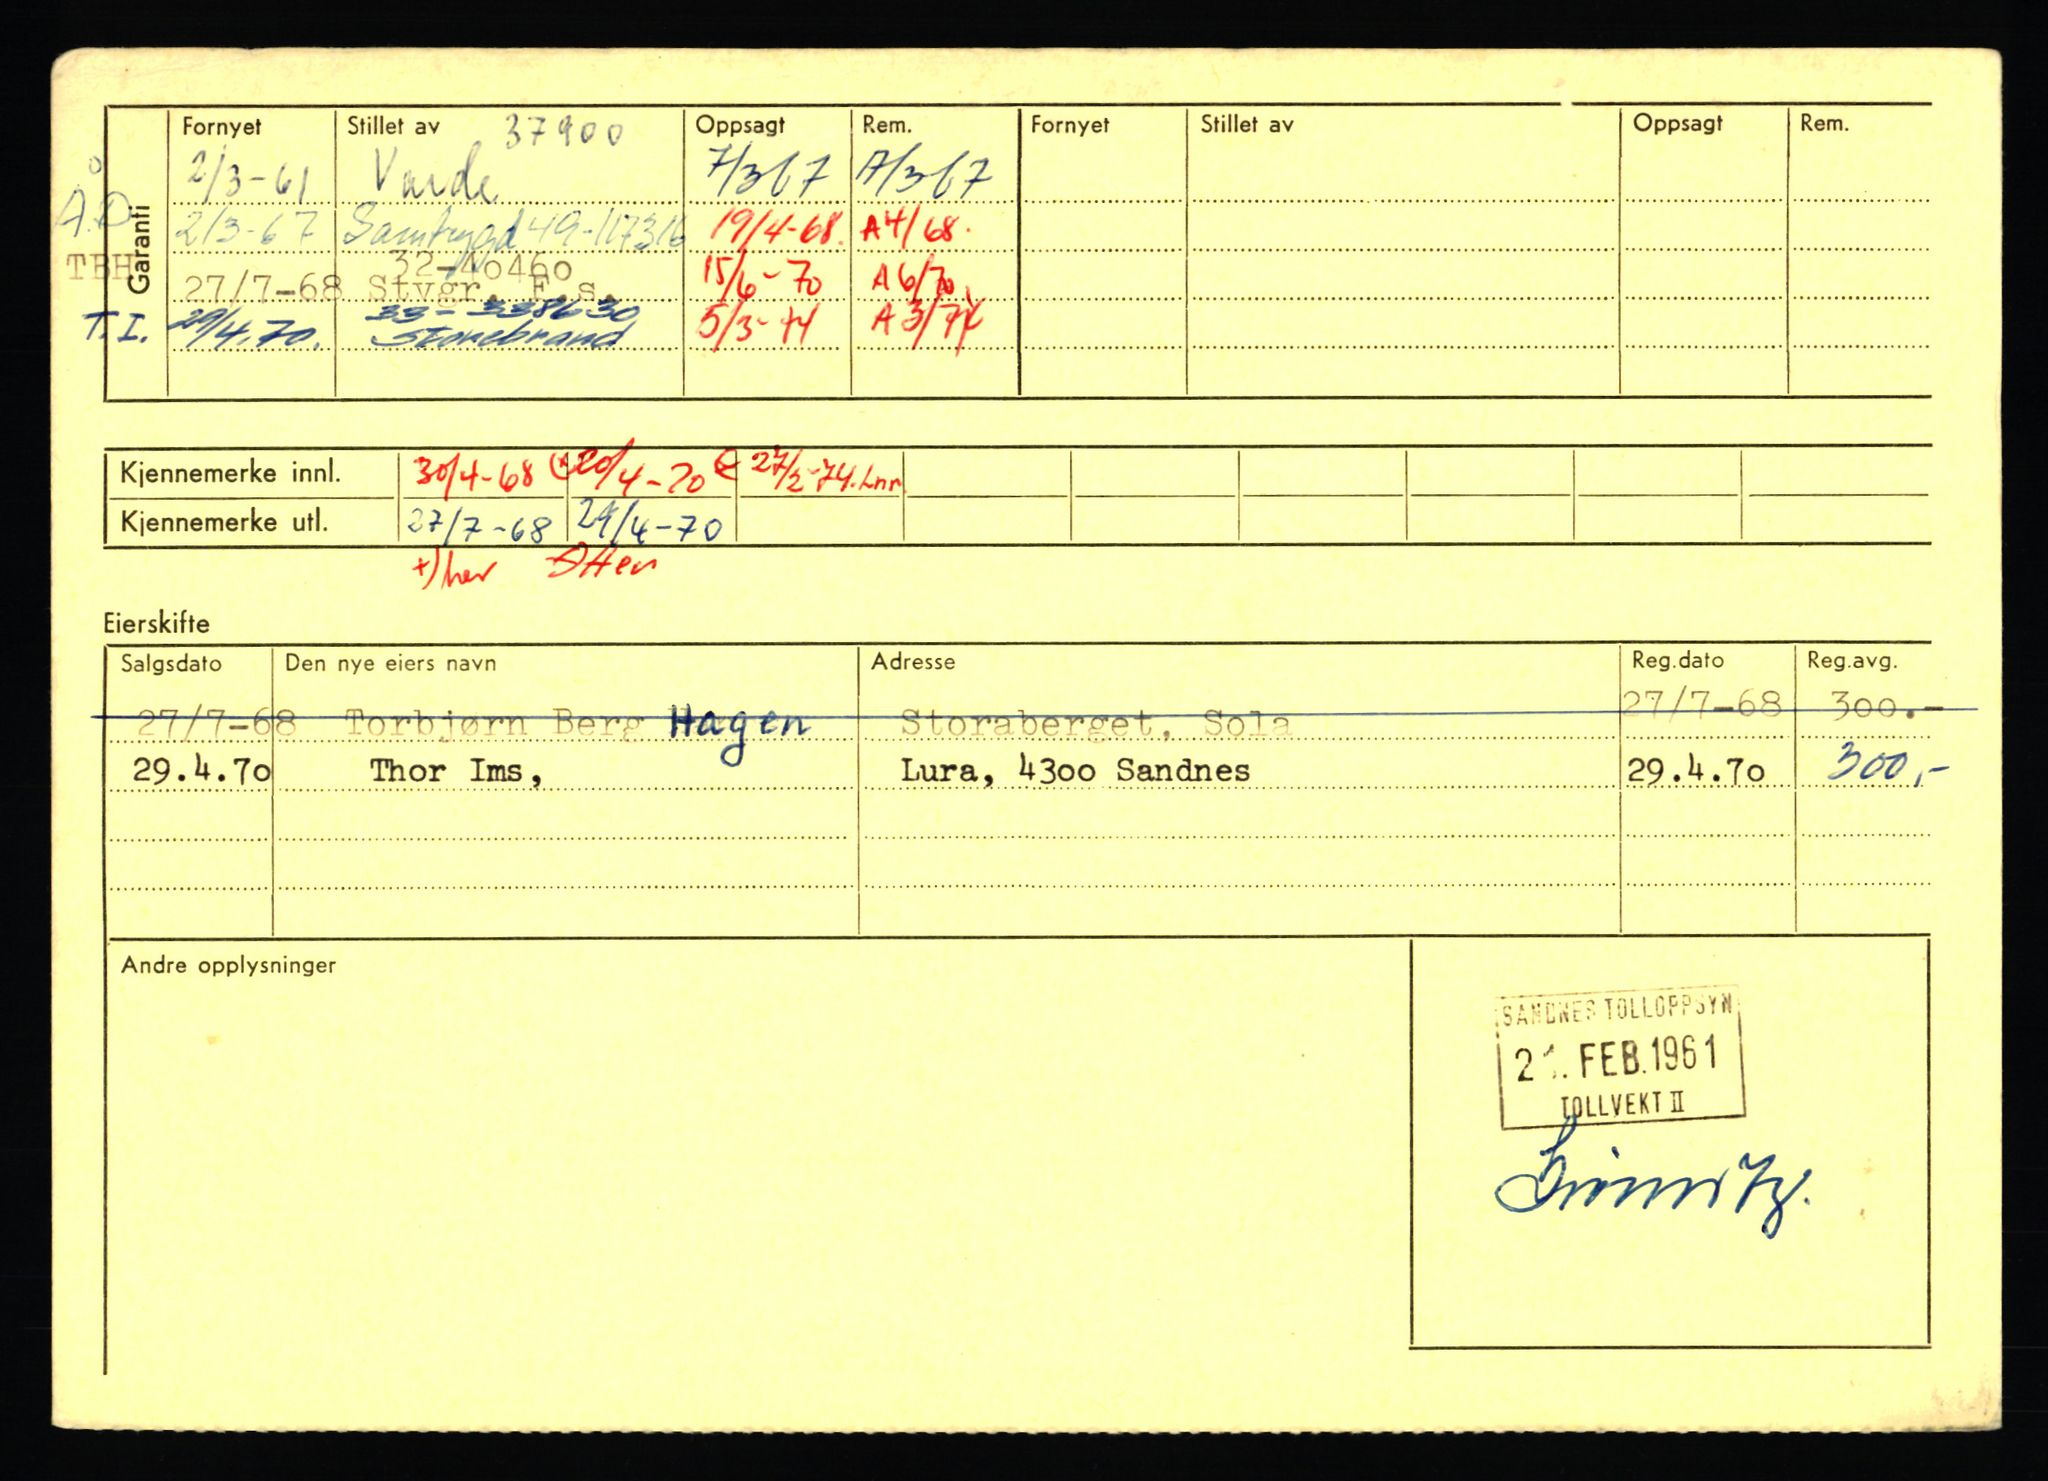 Garanti
Fornyet Stillet av 37900 Oppsagt Rem. Fornyet Stillet av Oppsagt Rem.
2/3-61 Varde 7/3 67 A/3 67
Å.O 2/3-67 Samtrygd 49-117316 19/4-68. A4/68.
TBH 32-40460
27/7-68 Stvgr. F.s. 15/6-70 A 6/70
33-338630
T.I. 29/4.70. Storebrand 5/3-74 A 3/74
Kjennemerke innl. 30/4-68 (+ 20/4-70 27/2-74. Lnr.
Kjennemerke utl. 27/7-68 29/4-70
+) her Her
Eierskifte
Salgsdato Den nye eiers navn Adresse Reg.dato Reg.avg.
27/7-68 Torbjørn Berg Hagen Storaberget, Sola 27/7-68 300.-
29.4.70 Thor Ims, Lura, 4300 Sandnes 29.4.70 300,-
Andre opplysninger
SANDNES TOLLOPPSYN
21. FEB. 1961
TOLLVEKT II